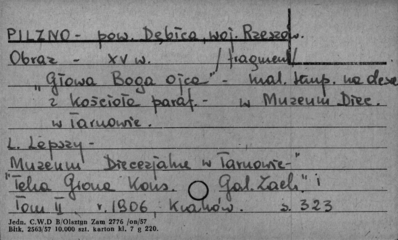 PILZNO - pow. Dębica, woj. Rzeszów.
Obraz - XV w. /fragment/
"Głowa Boga ojca" - mal. temp. na desce
z kościoła paraf. - w Muzeum Diec.
w Tarnowie.
L. Lepszy -
Muzeum Diecezjalne w Tarnowie -"
"Teka Grona Kons. Gal. Zach." i
Tom II r. 1906, Kraków. s. 323
Jedn. C.W.D B/Olsztyn Zam 2776 /on/57
Bltk. 2563/57 10.000 szt. karton kl. 7 g 220.